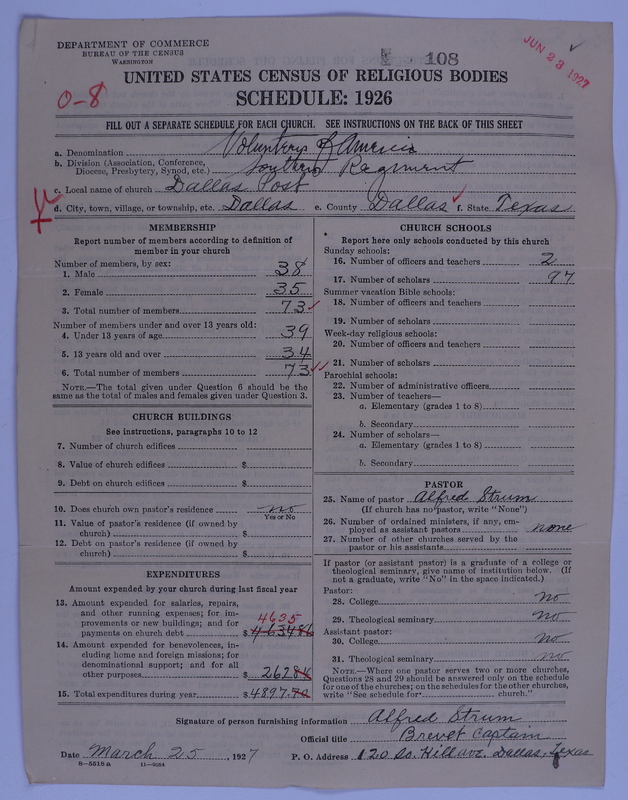 DEPARTMENT OF COMMERCE
BUREAU OF THE CENSUS
WASHINGTON
108
JUN 23 1927
UNITED STATES CENSUS OF RELIGIOUS BODIES
0-8
SCHEDULE: 1926
FILL OUT A SEPARATE SCHEDULE FOR EACH CHURCH. SEE INSTRUCTIONS ON THE BACK OF THIS SHEET
a. Denomination Volunteers of America
b. Division (Association, Conference, Diocese, Presbytery, Synod, etc.) Southern Regiment
c. Local name of church Dallas Post
d. City, town, village, or township, etc. Dallas e. County Dallas f. State Texas
MEMBERSHIP
Report number of members according to definition of
member in your church
Number of members, by sex:
1. Male 38
2. Female 35
3. Total number of members 73
Number of members under and over 13 years old:
4. Under 13 years of age 39
5. 13 years old and over 34
6. Total number of members 73
NOTE.—The total given under Question 6 should be
same as the total of males and females given under Question 3.
CHURCH BUILDINGS
See instructions, paragraphs 10 to 12
7. Number of church edifices
8. Value of church edifices $
9. Debt on church edifices $
10. Does church own pastor's residence no
Yes or No
11. Value of pastor's residence (if owned by
church) $
12. Debt on pastor's residence (if owned by
church) $
EXPENDITURES
Amount expended by your church during last fiscal year
13. Amount expended for salaries, repairs,
and other running expenses; for im-
provements or new buildings; and for 4635
payments on church debt $ 4634 86
14. Amount expended for benevolences, in-
cluding home and foreign missions; for
denominational support; and for all
other purposes $ 262 84
15. Total expenditures during year $ 4897.70
CHURCH SCHOOLS
Report here only schools conducted by this church
Sunday schools:
16. Number of officers and teachers 2
17. Number of scholars 97
Summer vacation Bible schools:
18. Number of officers and teachers
19. Number of scholars
Week-day religious schools:
20. Number of officers and teachers
21. Number of scholars
Parochial schools:
22. Number of administrative officers
23. Number of teachers—
a. Elementary (grades 1 to 8)
b. Secondary
24. Number of scholars—
a. Elementary (grades 1 to 8)
b. Secondary
PASTOR
25. Name of pastor Alfred Strum
(If church has no pastor, write "None")
26. Number of ordained ministers, if any, em-
ployed as assistant pastors none
27. Number of other churches served by the
pastor or his assistants
If pastor (or assistant pastor) is a graduate of a college or
theological seminary, give name of institution below. (If
not a graduate, write "No" in the space indicated.)
Pastor:
28. College no
29. Theological seminary no
Assistant pastor:
30. College no
31. Theological seminary no
NOTE.—Where one pastor serves two or more churches,
Questions 28 and 29 should be answered only on the schedule
for one of the churches; on the schedules for the other churches,
write "See schedule for church."
Signature of person furnishing information Alfred Strum
Official title Brevet Captain
Date March 25, 1927 P. O. Address 120 So. Hill ave. Dallas, Texas
8-5518 a 11-9084